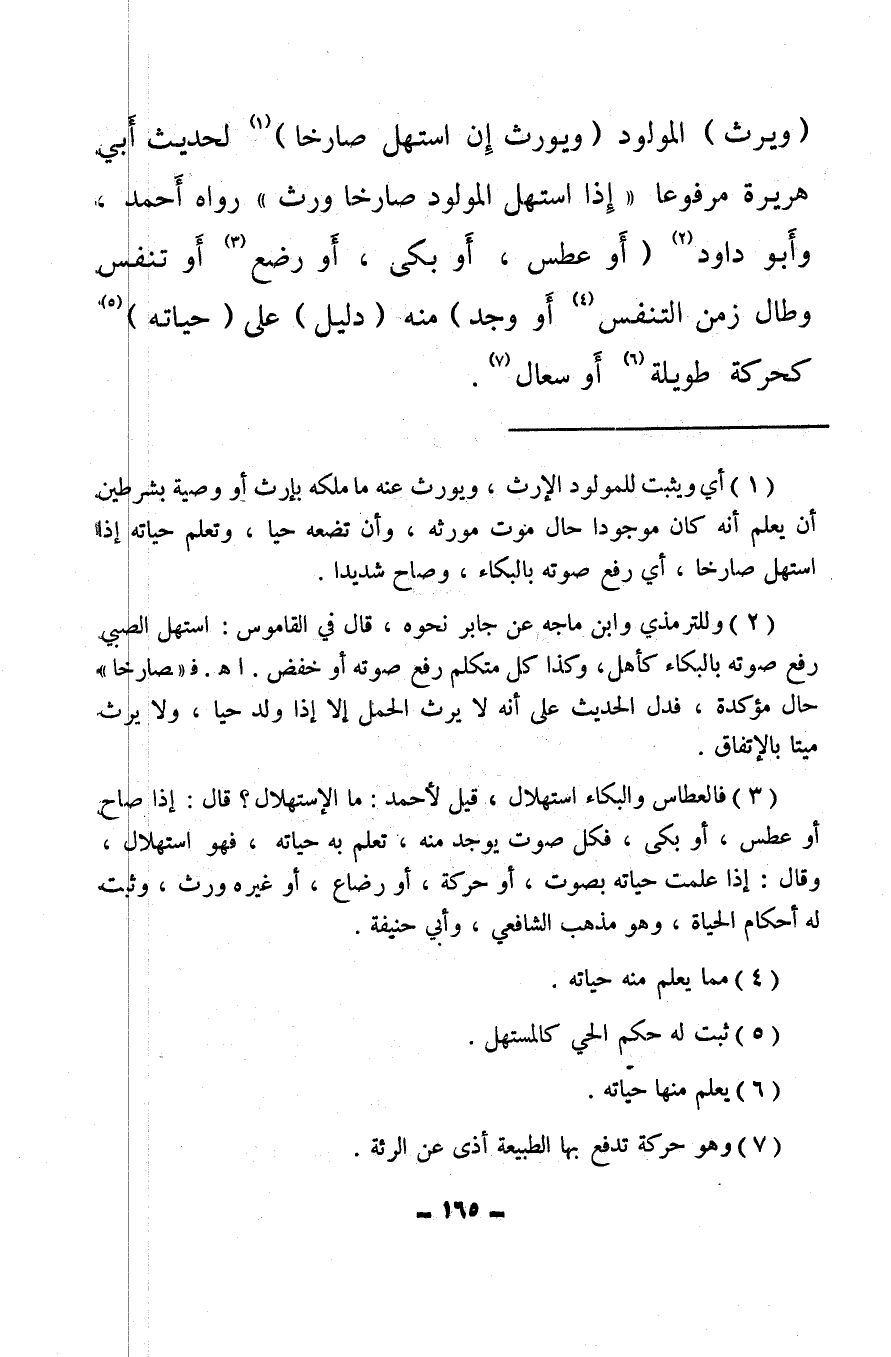 ( ويرث ) المولود ( ويورث إن استهل صارخا )(١) لحديث أبي
هريرة مرفوعا « إذا استهل المولود صارخا ورث » رواه أحمد ،
وأبو داود(٢) ( أو عطس ، أو بكى ، أو رضع(٣) أو تنفس
وطال زمن التنفس(٤) أو وجد ) منه ( دليل ) على ( حياته )(٥)
كحركة طويلة(٦) أو سعال(٧) .
( ١ ) أي ويثبت للمولود الإرث ، ويورث عنه ما ملكه بإرث أو وصية بشرطين
أن يعلم أنه كان موجودا حال موت مورثه ، وأن تضعه حيا ، وتعلم حياته إذا
استهل صارخا ، أي رفع صوته بالبكاء ، وصاح شديدا .
( ٢ ) وللترمذي وابن ماجه عن جابر نحوه ، قال في القاموس : استهل الصبي
رفع صوته بالبكاء كأهل، وكذا كل متكلم رفع صوته أو خفض . ا هـ . فـ «صارخا»
حال مؤكدة ، فدل الحديث على أنه لا يرث الحمل إلا إذا ولد حيا ، ولا يرث
ميتا بالإتفاق .
( ٣ ) فالعطاس والبكاء استهلال ، قيل لأحمد : ما الإستهلال ؟ قال : إذا صاح
أو عطس ، أو بكى ، فكل صوت يوجد منه ، تعلم به حياته ، فهو استهلال ،
وقال : إذا علمت حياته بصوت ، أو حركة ، أو رضاع ، أو غيره ورث ، وثبت
له أحكام الحياة ، وهو مذهب الشافعي ، وأبي حنيفة .
( ٤ ) مما يعلم منه حياته .
( ٥ ) ثبت له حكم الحي كالمستهل .
( ٦ ) يعلم منها حياته .
( ٧ ) وهو حركة تدفع بها الطبيعة أذى عن الرئة .
– ١٦٥ –